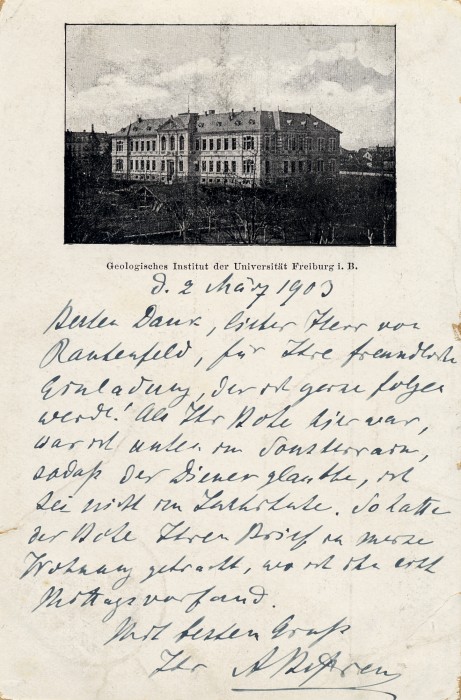 Geologisches Institut der Universität Freiburg i. B.
d. 2 März 1903
Besten Dank, lieber Herr von
Rautenfeld, für Ihre freundliche
Einladung, der ich gerne folgen
werde! Als Ihr Bote hier war,
war ich unten im Souterrain,
sodaß der Diener glaubte, ich
sei nicht im Institute. So hatte
der Bote Ihren Brief in meine
Wohnung gebracht, wo ich ihn erst
Mittags vorfand.
Mit bestem Gruß
Ihr A